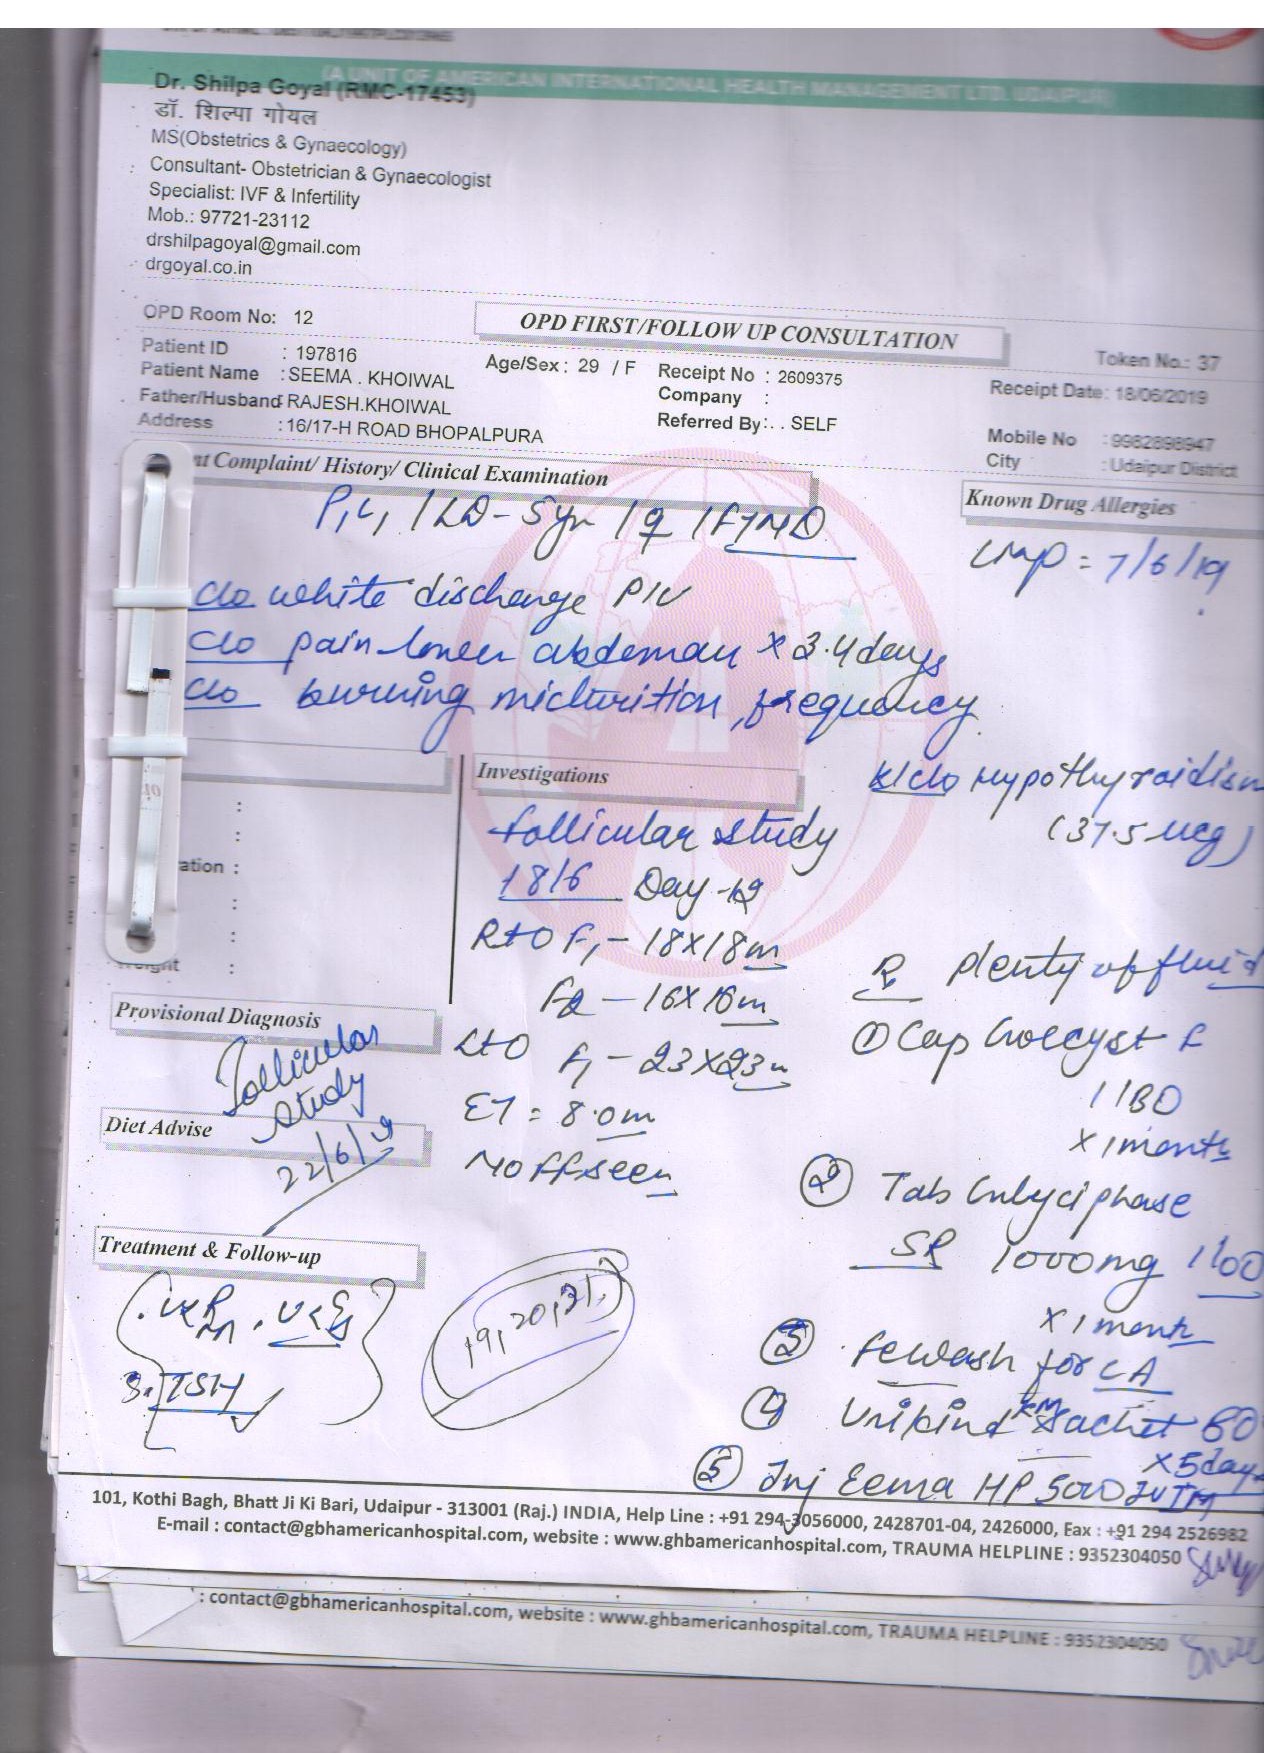 (A UNIT OF AMERICAN INTERNATIONAL HEALTH MANAGEMENT LTD. UDAIPUR)
Dr. Shilpa Goyal (RMC-17453)
डॉ. शिल्पा गोयल
MS(Obstetrics & Gynaecology)
Consultant- Obstetrician & Gynaecologist
Specialist: IVF & Infertility
Mob.: 97721-23112
drshilpagoyal@gmail.com
drgoyal.co.in
OPD Room No: 12
OPD FIRST/FOLLOW UP CONSULTATION
Token No.: 37
Patient ID : 197816
Age/Sex : 29 / F
Receipt No : 2609375
Receipt Date: 18/06/2019
Patient Name : SEEMA . KHOIWAL
Company :
Father/Husband RAJESH.KHOIWAL
Referred By : . . SELF
Mobile No : 9982898947
Address : 16/17-H ROAD BHOPALPURA
City : Udaipur District
nt Complaint/ History/ Clinical Examination
Known Drug Allergies
P1L1 / LD - 5yr / ♀ / FTND
LMP = 7/6/19
c/o white discharge P/V
c/o pain lower abdoman x 3.4 days
c/o burning micturition, frequency
Investigations
K/c/o Hypothyroidism
(37.5 mcg)
follicular study
18/6 Day - 12
ation :
Rt O F1 - 18X18m
F2 - 16X16m
Lt O F1 - 23X23m
ET = 8.0m
No FF seen
R plenty of fluid
① Cap
1 BD
x 1 month
② Tab
SR 1000mg 1 OD
x 1 month
③ fewash for LA
④ Unikind Sachet BD
x 5 days
⑤ Inj Eema HP 5000 IU IM
Weight :
Provisional Diagnosis
Follicular
study
22/6/19
Diet Advise
Treatment & Follow-up
S. TSH
19, 20, 21,
101, Kothi Bagh, Bhatt Ji Ki Bari, Udaipur - 313001 (Raj.) INDIA, Help Line : +91 294-3056000, 2428701-04, 2426000, Fax : +91 294 2526982
E-mail : contact@gbhamericanhospital.com, website : www.ghbamericanhospital.com, TRAUMA HELPLINE : 9352304050
: contact@gbhamericanhospital.com, website : www.ghbamericanhospital.com, TRAUMA HELPLINE : 9352304050